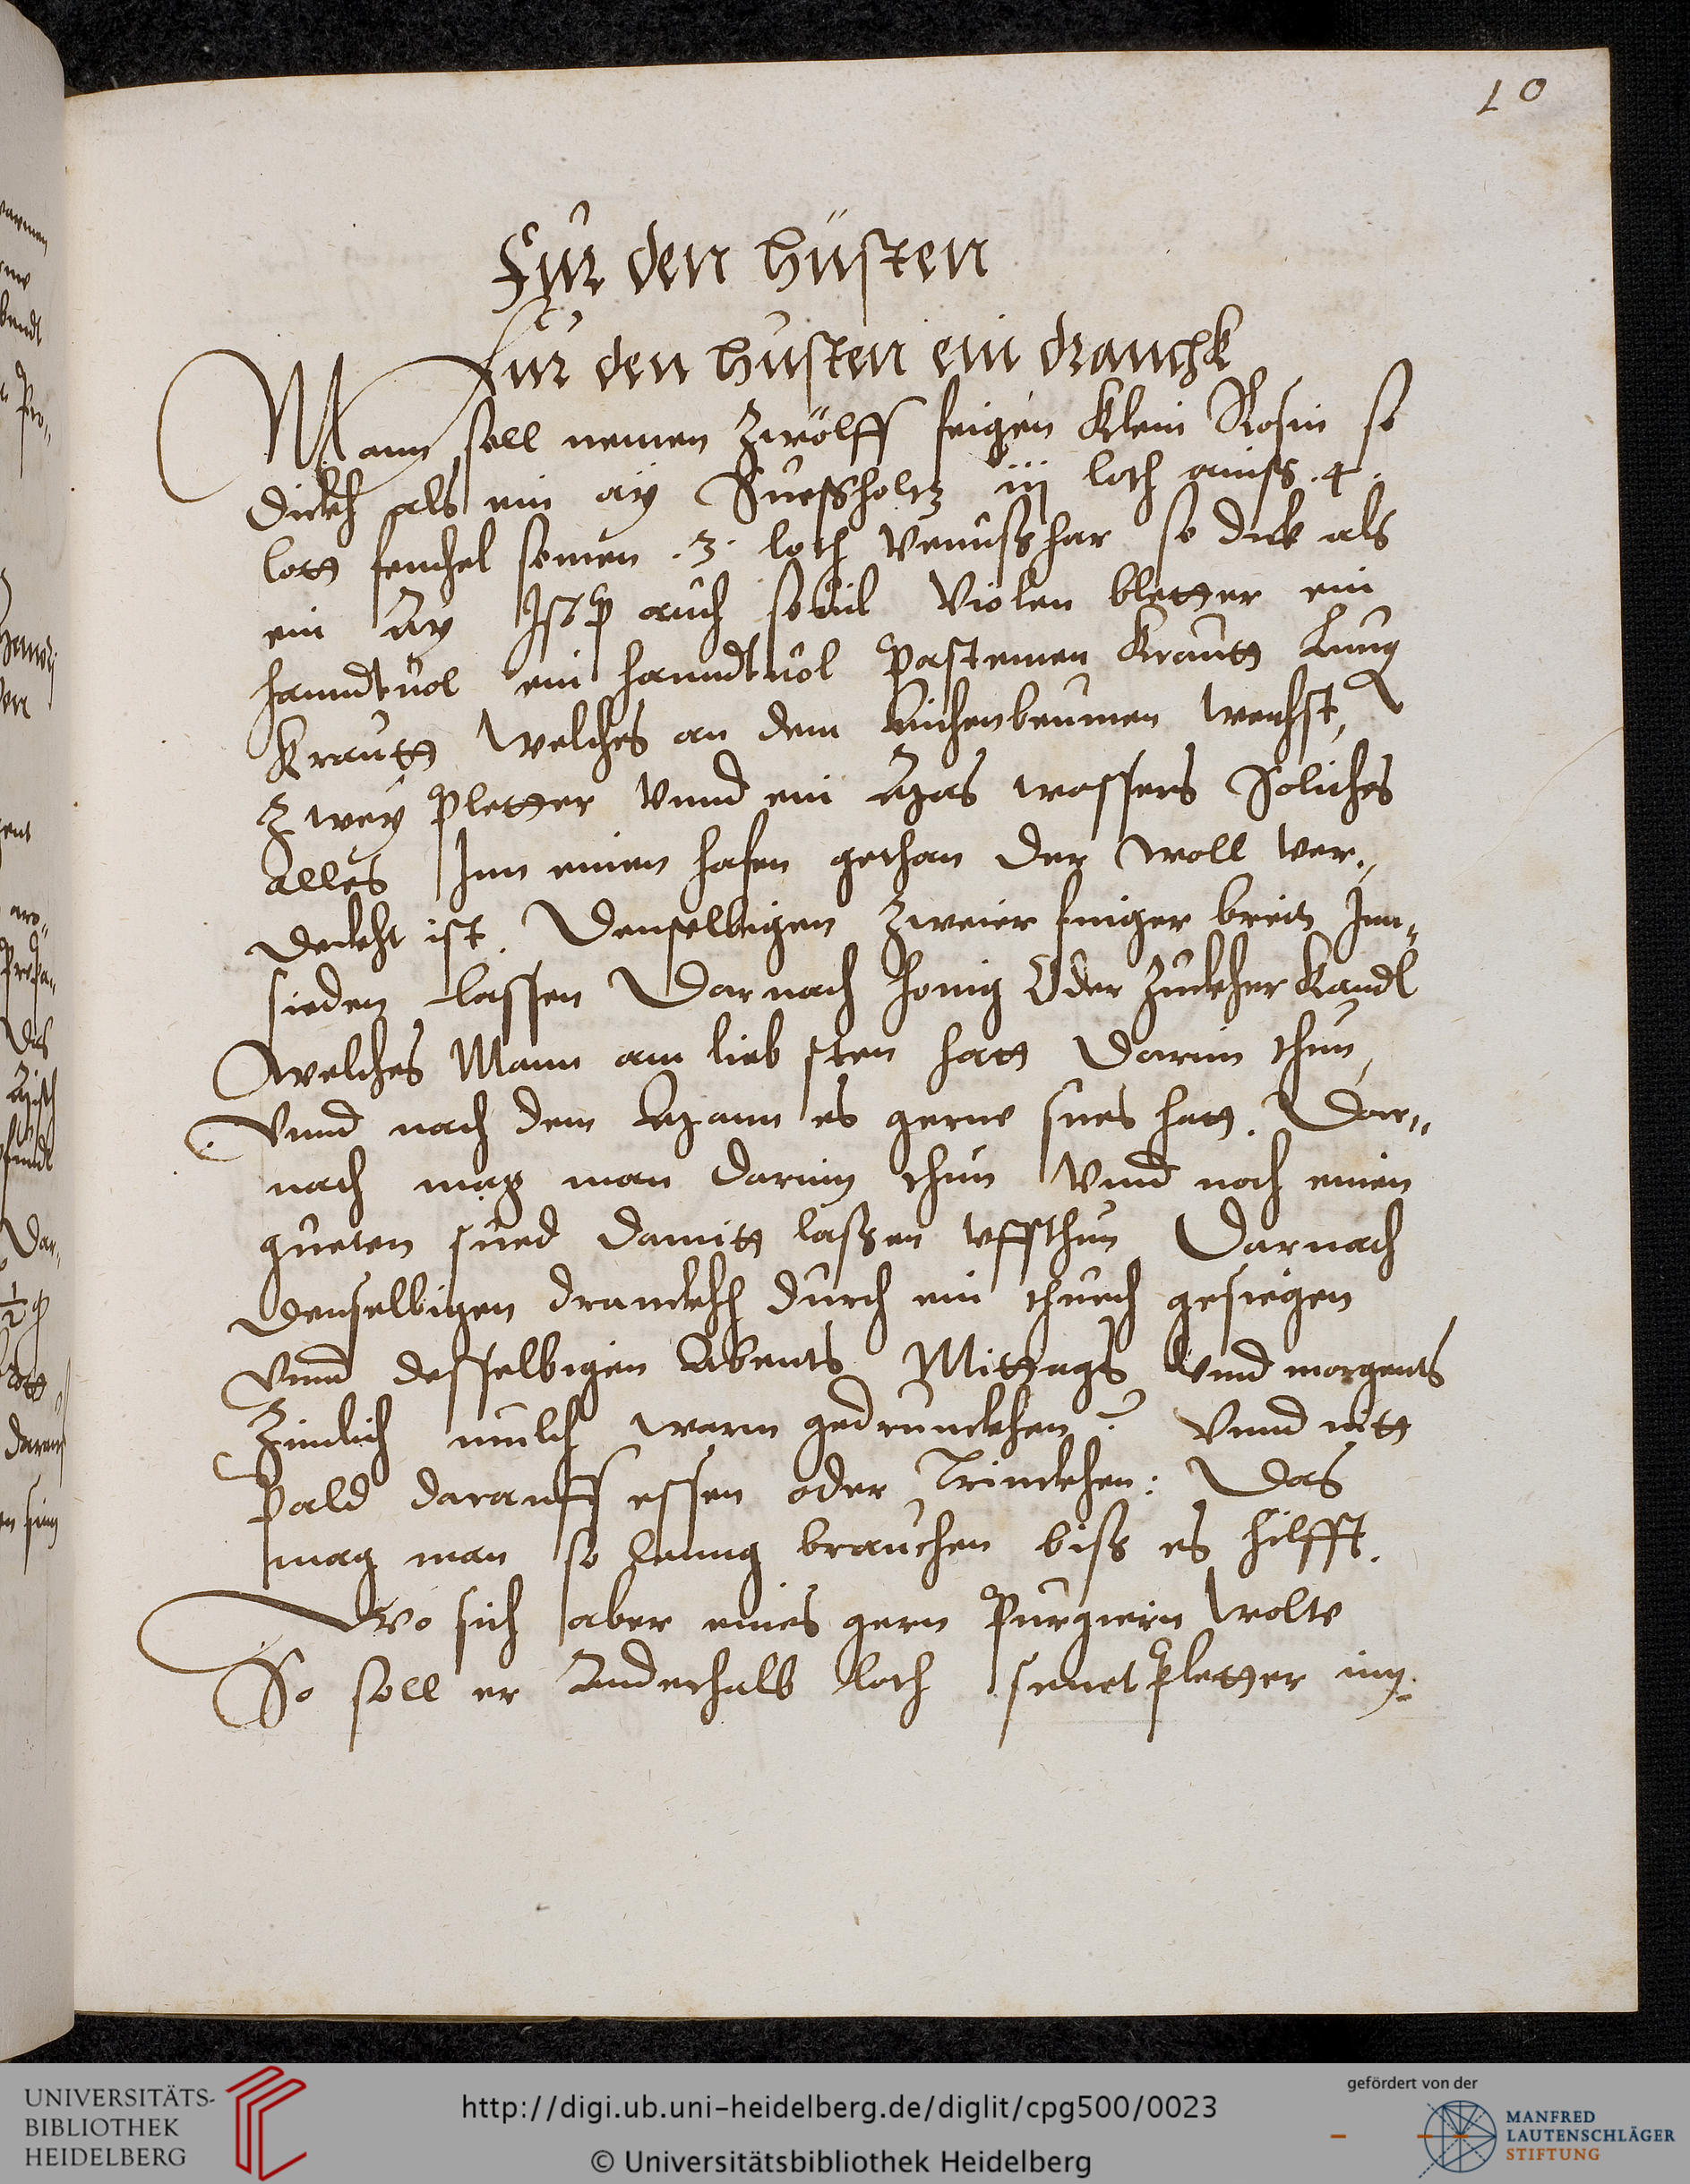 10
Für den hüsten
Fur den husten ein dranchk
Mann soll nemen Zwölff feigen Klein Rosin so
dickh als ein aÿ Suessholtz iij loth aniss .4.
lott fenchel somen .3. loth Venusshar so dick als
ein Ay Isop auch souil Violen bletter ein
hanndtuol ein hanndtuol Pastemen Krautt Lung
Krautt Welches an dem Eichenbeumen wechst,
Zweÿ Pletter Vnnd ein Mas wassers Soliches
alles Inn einen hafen gethan der woll ver„
deckht ist. Denselbigen Zweier finger breit Inn„
sieden lassen Darnach honig Oder Zuckher Kandl
welches Mann am lieb sten hatt Darin thun,
Vnnd nach dem Mann es gerne sues hatt. Dar„
nach mag man darinn thun Vnnd noch einen
gueten sued damitt lassen vffthun Darnach
denselbigen dranckh durch ein thuech gesiegen
Vnnd desselbigen Abents Mittags Vnd morgents
Zimlich milch warm gedrunckhen? Vnnd nitt
Pald darauff essen oder Trinckhen: Das
mag man so lanng brauchen biss es hilfft.
Wo sich aber eines gern Purgiern wolte
So soll er Anderhalb loth senet Pletter inn„
warmen
Das
Dar„
darein
UNIVERSITÄTS-
BIBLIOTHEK
HEIDELBERG
http://digi.ub.uni-heidelberg.de/diglit/cpg500/0023
© Universitätsbibliothek Heidelberg
gefördert von der
MANFRED
LAUTENSCHLÄGER
STIFTUNG